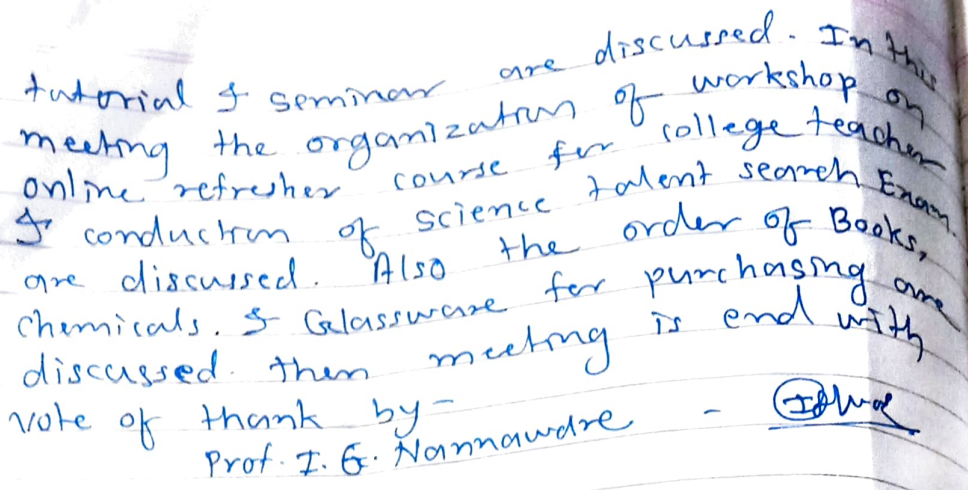 tutorial & seminar are discussed. In this
meeting the organization of workshop on
online refresher course for college teacher
& conduction of science talent search Exam.
are discussed. Also the order of Books,
chemicals. & Glassware for purchasing are
discussed. then meeting is end with
vote of thank by -
Prof. I. G. Nannaware -